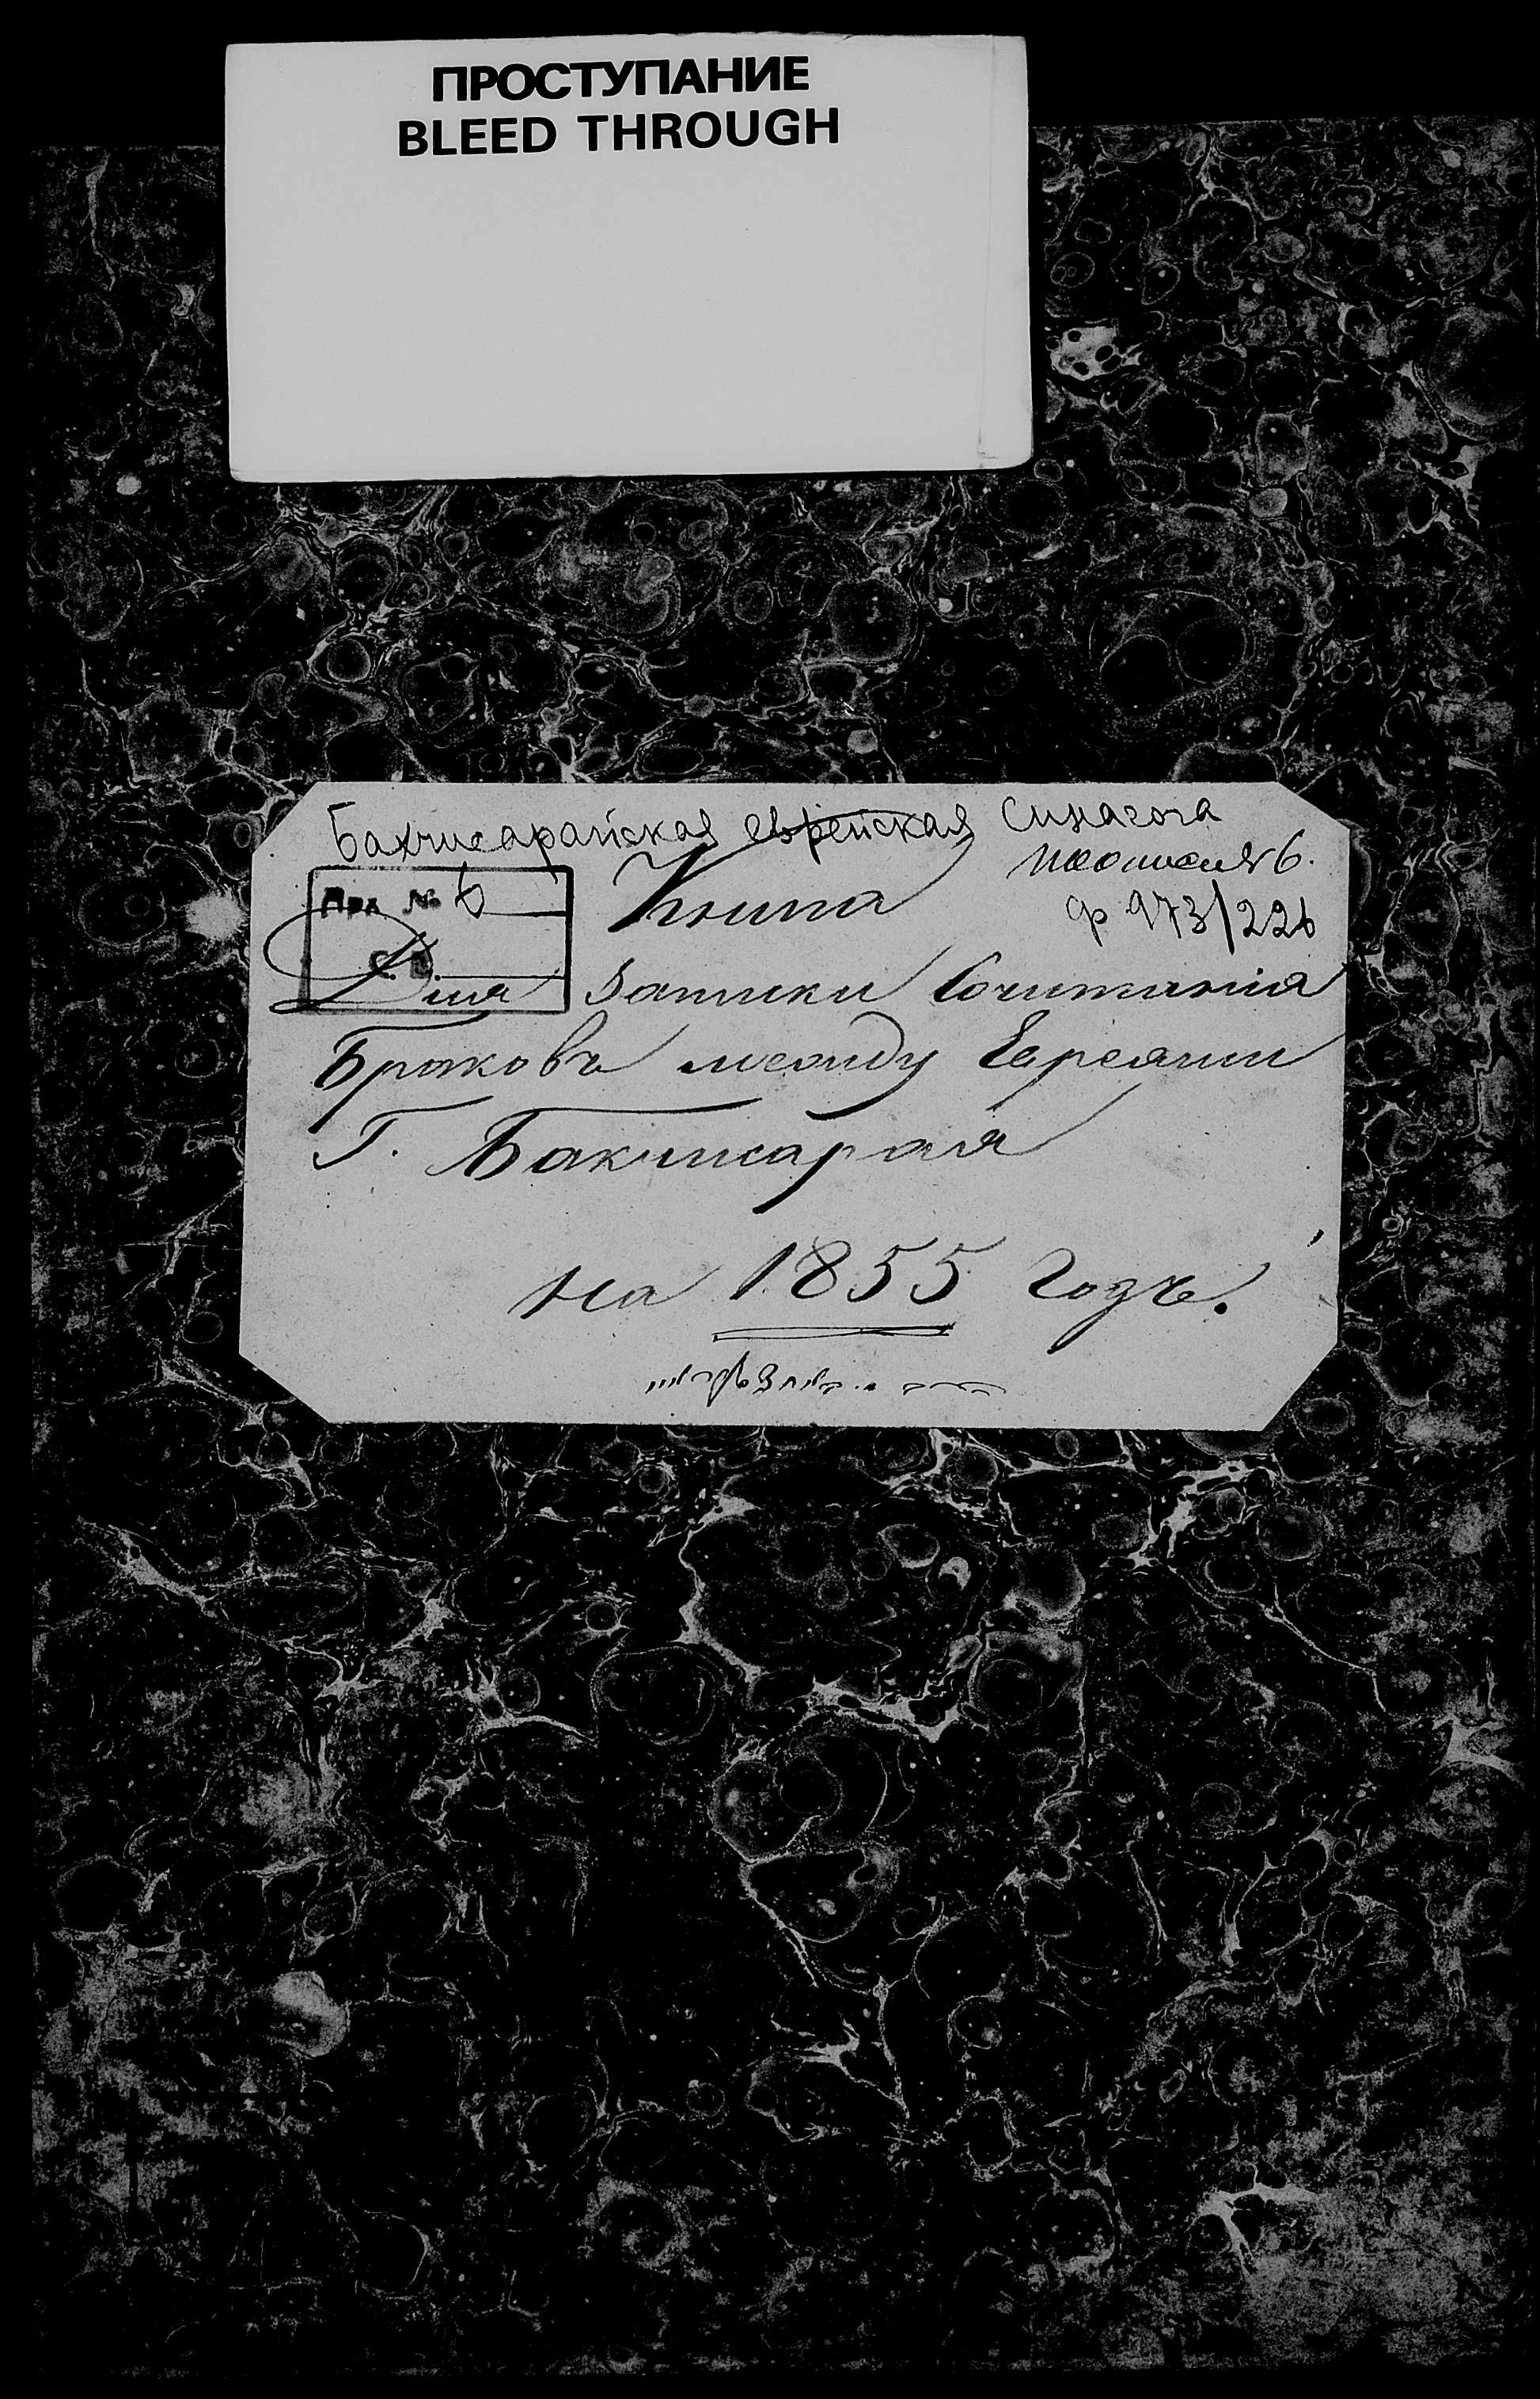 ПРОСТУПАНИЕ
BLEED THROUGH
Бахчисарайская еврейская синагога
по описи № 6.
Арх № 6
Книга
ф 973/226
Для записки Сочитанія
Браковъ между Евреями
Г. Бакчисарая
на 1855 Годъ.